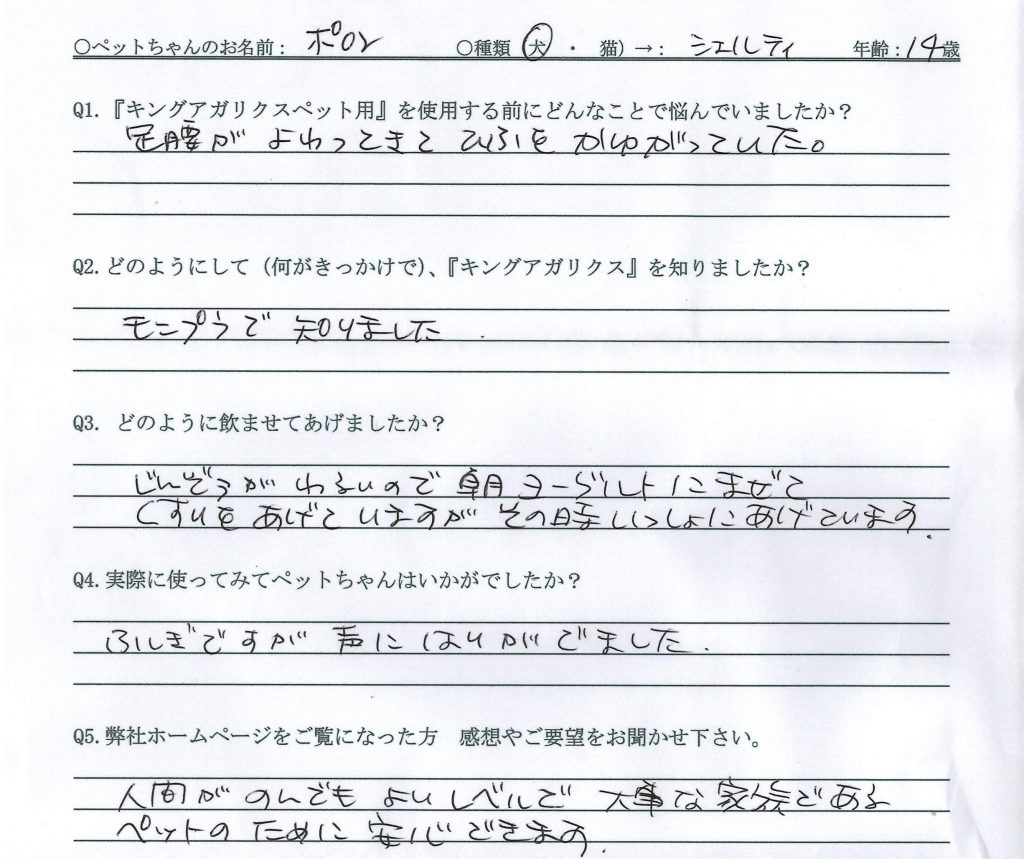 ○ペットちゃんのお名前： ポロン ○種類（犬 ・ 猫）→： シェルティ 年齢：14歳
Q1.『キングアガリクスペット用』を使用する前にどんなことで悩んでいましたか？
足腰が よわってきて ひふを かゆがっていた。
Q2.どのようにして（何がきっかけで）、『キングアガリクス』を知りましたか？
モニプラで 知りました.
Q3. どのように飲ませてあげましたか？
じんぞうが わるいので 朝ヨーグルトにまぜて
くすりを あげていますが その時 いっしょに あげています.
Q4.実際に使ってみてペットちゃんはいかがでしたか？
ふしぎですが 声に はりがでました.
Q5.弊社ホームページをご覧になった方 感想やご要望をお聞かせ下さい。
人間が のんでも よい レベルで 大事な家族である
ペットの ために 安心できます.